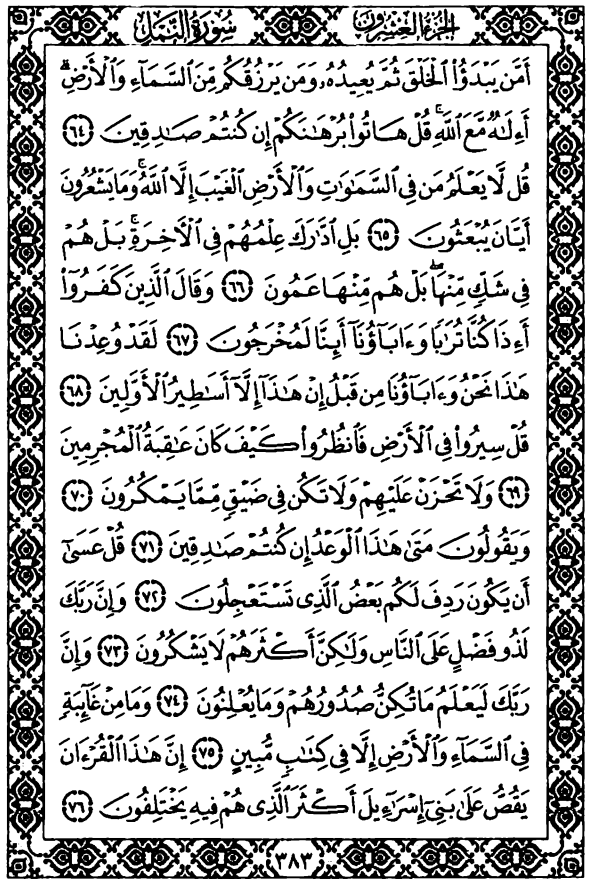 الجزء العشرون سورة النمل
أَمَّن يَبْدَؤُا۟ ٱلْخَلْقَ ثُمَّ يُعِيدُهُۥ وَمَن يَرْزُقُكُم مِّنَ ٱلسَّمَآءِ وَٱلْأَرْضِۗ
أَءِلَٰهٌ مَّعَ ٱللَّهِۚ قُلْ هَاتُوا۟ بُرْهَٰنَكُمْ إِن كُنتُمْ صَٰدِقِينَ ٦٤
قُل لَّا يَعْلَمُ مَن فِى ٱلسَّمَٰوَٰتِ وَٱلْأَرْضِ ٱلْغَيْبَ إِلَّا ٱللَّهُۚ وَمَا يَشْعُرُونَ
أَيَّانَ يُبْعَثُونَ ٦٥ بَلِ ٱدَّٰرَكَ عِلْمُهُمْ فِى ٱلْءَاخِرَةِۚ بَلْ هُمْ
فِى شَكٍّ مِّنْهَاۖ بَلْ هُم مِّنْهَا عَمُونَ ٦٦ وَقَالَ ٱلَّذِينَ كَفَرُوٓا۟
أَءِذَا كُنَّا تُرَٰبًا وَءَابَآؤُنَآ أَئِنَّا لَمُخْرَجُونَ ٦٧ لَقَدْ وُعِدْنَا
هَٰذَا نَحْنُ وَءَابَآؤُنَا مِن قَبْلُ إِنْ هَٰذَآ إِلَّآ أَسَٰطِيرُ ٱلْأَوَّلِينَ ٦٨
قُلْ سِيرُوا۟ فِى ٱلْأَرْضِ فَٱنظُرُوا۟ كَيْفَ كَانَ عَٰقِبَةُ ٱلْمُجْرِمِينَ
٦٩ وَلَا تَحْزَنْ عَلَيْهِمْ وَلَا تَكُن فِى ضَيْقٍ مِّمَّا يَمْكُرُونَ ٧٠
وَيَقُولُونَ مَتَىٰ هَٰذَا ٱلْوَعْدُ إِن كُنتُمْ صَٰدِقِينَ ٧١ قُلْ عَسَىٰٓ
أَن يَكُونَ رَدِفَ لَكُم بَعْضُ ٱلَّذِى تَسْتَعْجِلُونَ ٧٢ وَإِنَّ رَبَّكَ
لَذُو فَضْلٍ عَلَى ٱلنَّاسِ وَلَٰكِنَّ أَكْثَرَهُمْ لَا يَشْكُرُونَ ٧٣ وَإِنَّ
رَبَّكَ لَيَعْلَمُ مَا تُكِنُّ صُدُورُهُمْ وَمَا يُعْلِنُونَ ٧٤ وَمَا مِنْ غَآئِبَةٍ
فِى ٱلسَّمَآءِ وَٱلْأَرْضِ إِلَّا فِى كِتَٰبٍ مُّبِينٍ ٧٥ إِنَّ هَٰذَا ٱلْقُرْءَانَ
يَقُصُّ عَلَىٰ بَنِىٓ إِسْرَٰٓءِيلَ أَكْثَرَ ٱلَّذِى هُمْ فِيهِ يَخْتَلِفُونَ ٧٦
٣٨٣